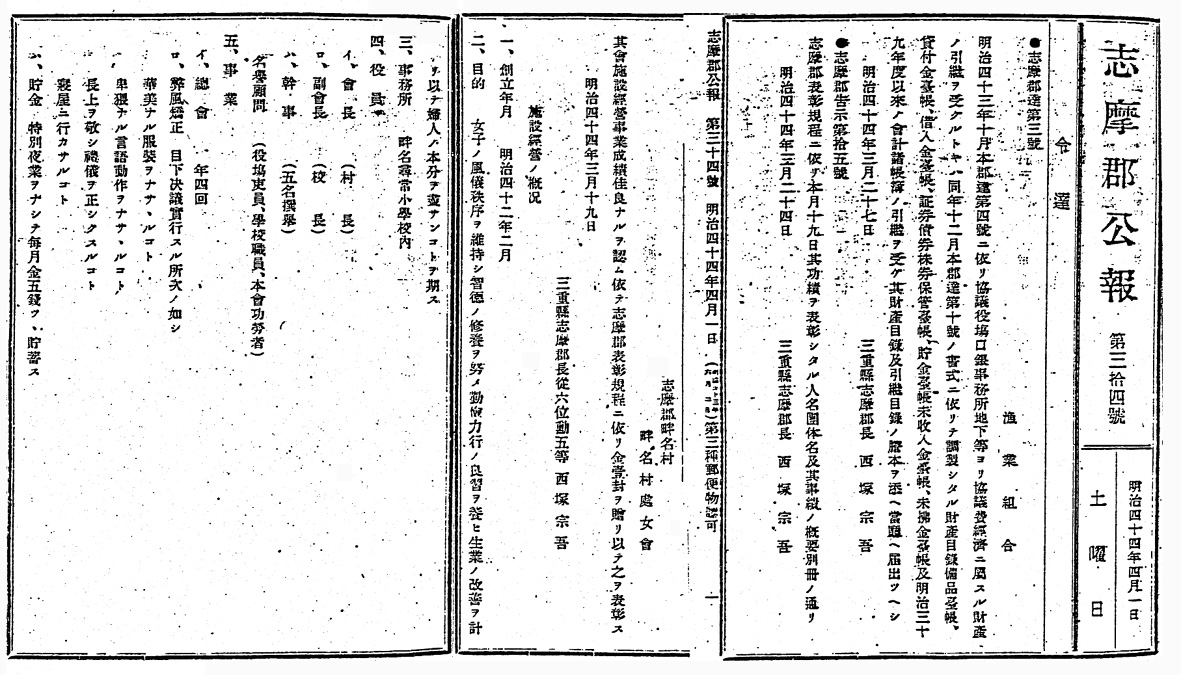 志摩郡公報
第三拾四號
明治四十四年四月一日
土曜日
令達
●志摩郡達第三號
漁業組合
明治四十三年十月本郡達第四號ニ依リ協議役場口銀事務所地下等ヨリ協議費經濟ニ屬スル財產
ノ引繼ヲ受クルトキハ同年十二月本郡達第十號ノ書式ニ依リテ調製シタル財產目錄備品臺帳、
貸付金臺帳、借入金臺帳、証券債券株券保管臺帳、貯金臺帳未收入金臺帳、未拂金臺帳及明治三十
九年度以來ノ會計諸帳簿ノ引繼ヲ受ケ其財產目錄及引繼目錄ノ謄本ヲ添ヘ當廳ヘ屆出ツヘシ
明治四十四年三月二十七日
三重縣志摩郡長 西塚宗吾
●志摩郡吿示第拾五號
志摩郡表彰規程ニ依リ本月十九日其功績ヲ表彰シタル人名團体名及其事績ノ概要別冊ノ通リ
明治四十四年三月二十四日
三重縣志摩郡長 西塚宗吾
志摩郡公報 第三十四號 明治四十四年四月一日 第三種郵便物認可 一
志摩郡畔名村
畔名村處女會
其會施設經營事業成績佳良ナルヲ認ム依テ志摩郡表彰規程ニ依リ金壹封ヲ贈リ以テ之ヲ表彰ス
明治四十四年三月十九日
三重縣志摩郡長從六位勳五等 西塚宗吾
施設經營ノ概况
一、創立年月 明治四十二年二月
二、目的 女子ノ風儀秩序ヲ維持シ智德ノ修養ヲ努メ勤儉力行ノ良習ヲ養ヒ生業ノ改善ヲ計
リ以テ婦人ノ本分ヲ盡サンコトヲ期ス
三、事務所 畔名尋常小學校內
四、役員
イ、會長 (村長)
ロ、副會長 (校長)
ハ、幹事 (五名撰擧)
名譽顧問 (役塲吏員、學校職員、本會功勞者)
五、事業
イ、總會 年四回
ロ、弊風矯正 目下决議實行スル所次ノ如シ
華美ナル服裝ヲナサヽルコト
卑猥ナル言語動作ヲナサヽルコト
長上ヲ敬シ禮儀ヲ正シクスルコト
寢屋ニ行カサルコト
ハ、貯金 特別夜業ヲナシテ每月金五錢ヲ、貯蓄ス